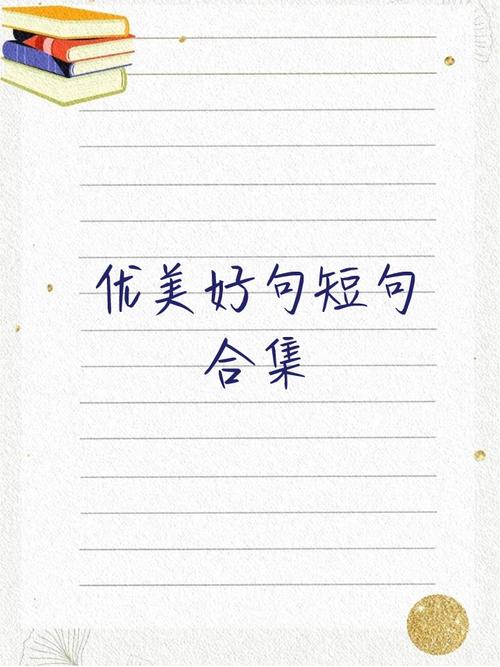 优美好句短句
合集